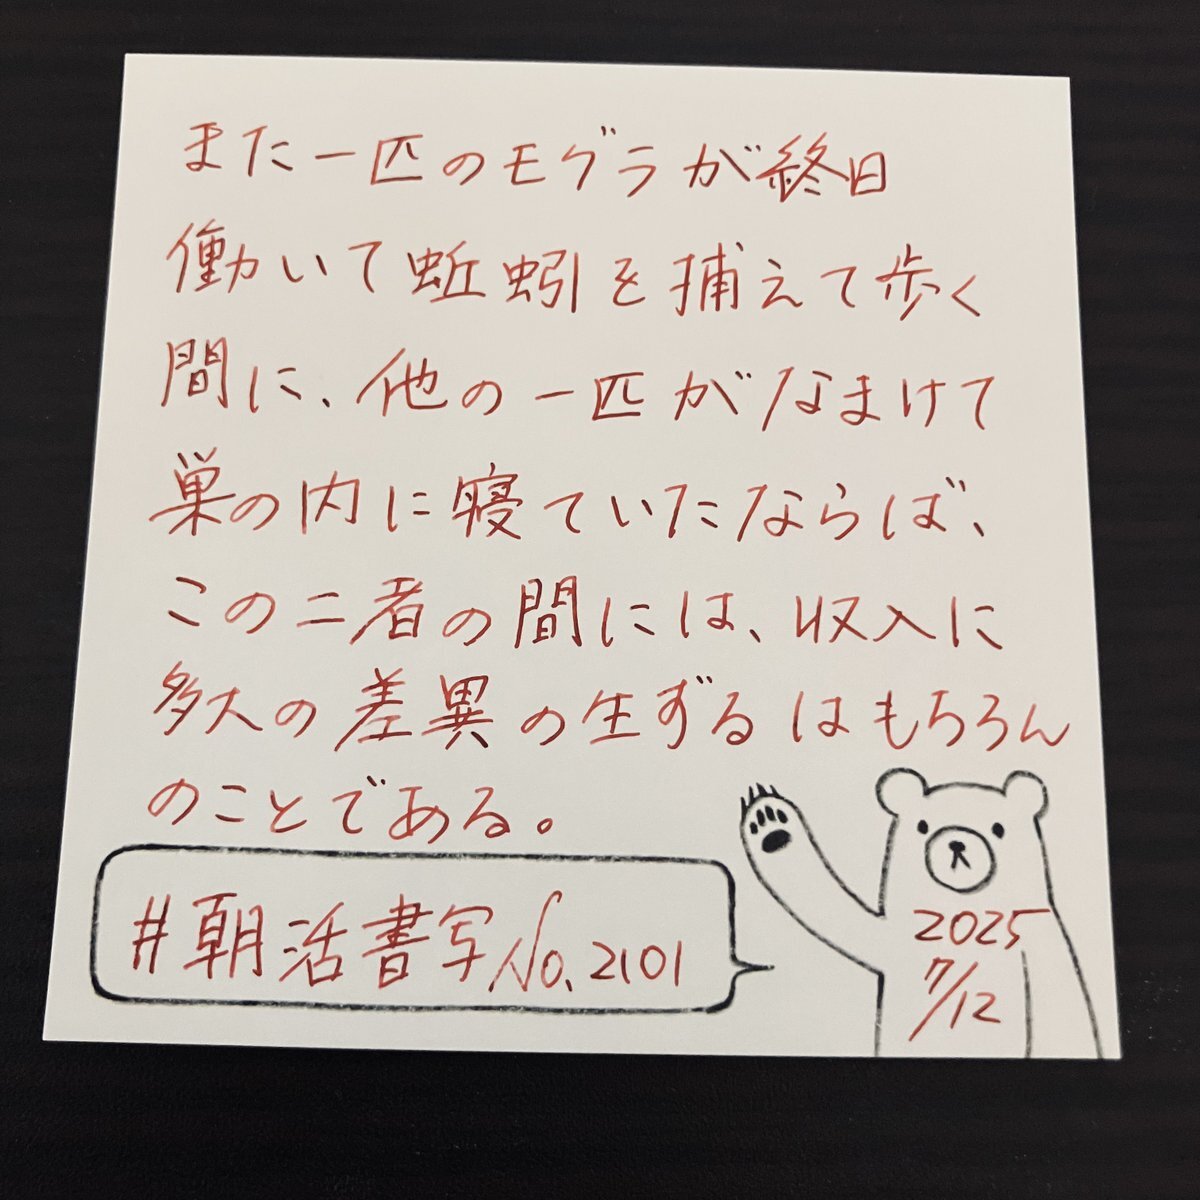 また一匹のモグラが終日
働いて蚯蚓を捕えて歩く
間に、他の一匹がなまけて
巣の内に寝ていたならば、
この二者の間には、収入に
多大の差異の生ずるはもちろん
のことである。
#朝活書写No.2101
2025
7/12